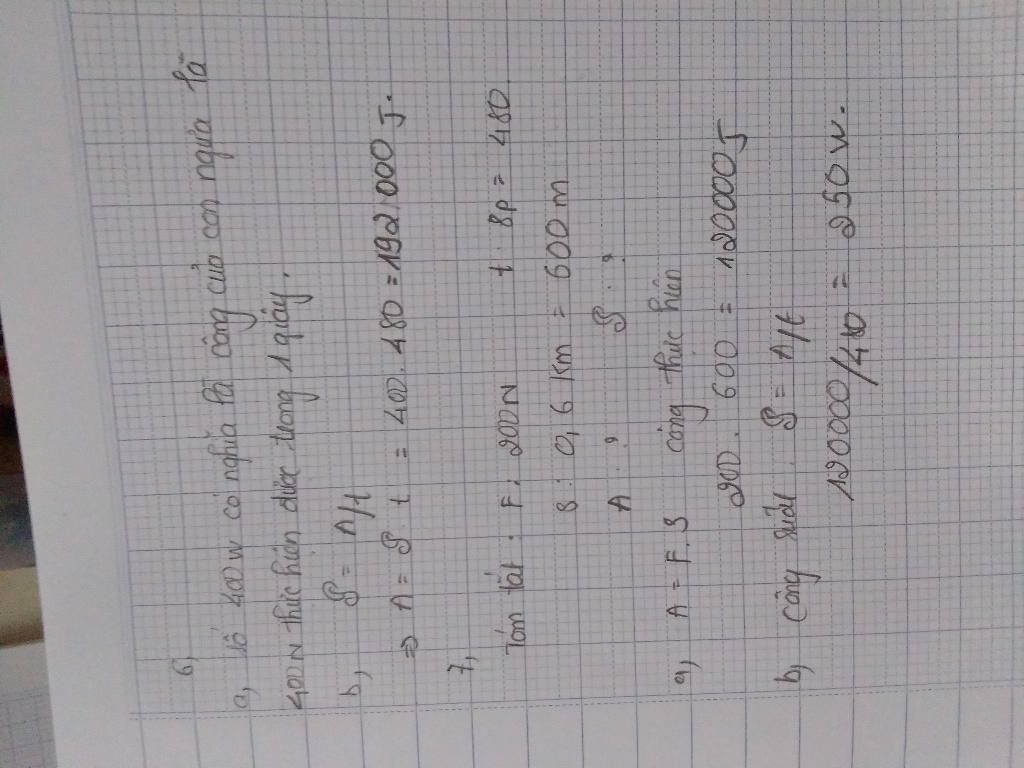 6,
a, Số 400 W có nghĩa là công của con ngựa là
400 N thực hiện được trong 1 giây.
b, P = A/t
=> A = P. t = 400. 480 = 192.000 J.
7,
Tóm tắt. F: 200N t 8p = 480
S: 0,6 km = 600 m
A: ? P: ?
a, A = F.S công thực hiện
200. 600 = 120000 J
b, Công suất. P = A/t
120000/480 = 250 W.